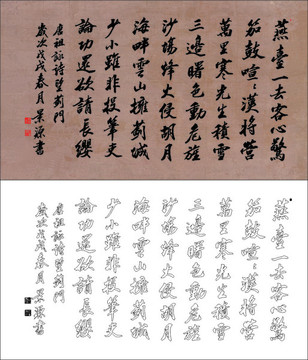 燕臺一去客心驚
笳鼓喧〻漢將營
萬里寒光生積雪
三邊曙色動危旌
沙場烽火侵胡月
海畔雲山擁薊城
少小雖非投筆吏
論功還欲請長纓
唐祖詠詩望薊門
歲次戊戌春月 書
燕臺一去客心驚
笳鼓喧〻漢將營
萬里寒光生積雪
三邊曙色動危旌
沙場烽火侵胡月
海畔雲山擁薊城
少小雖非投筆吏
論功還欲請長纓
唐祖詠詩望薊門
歲次戊戌春月 書